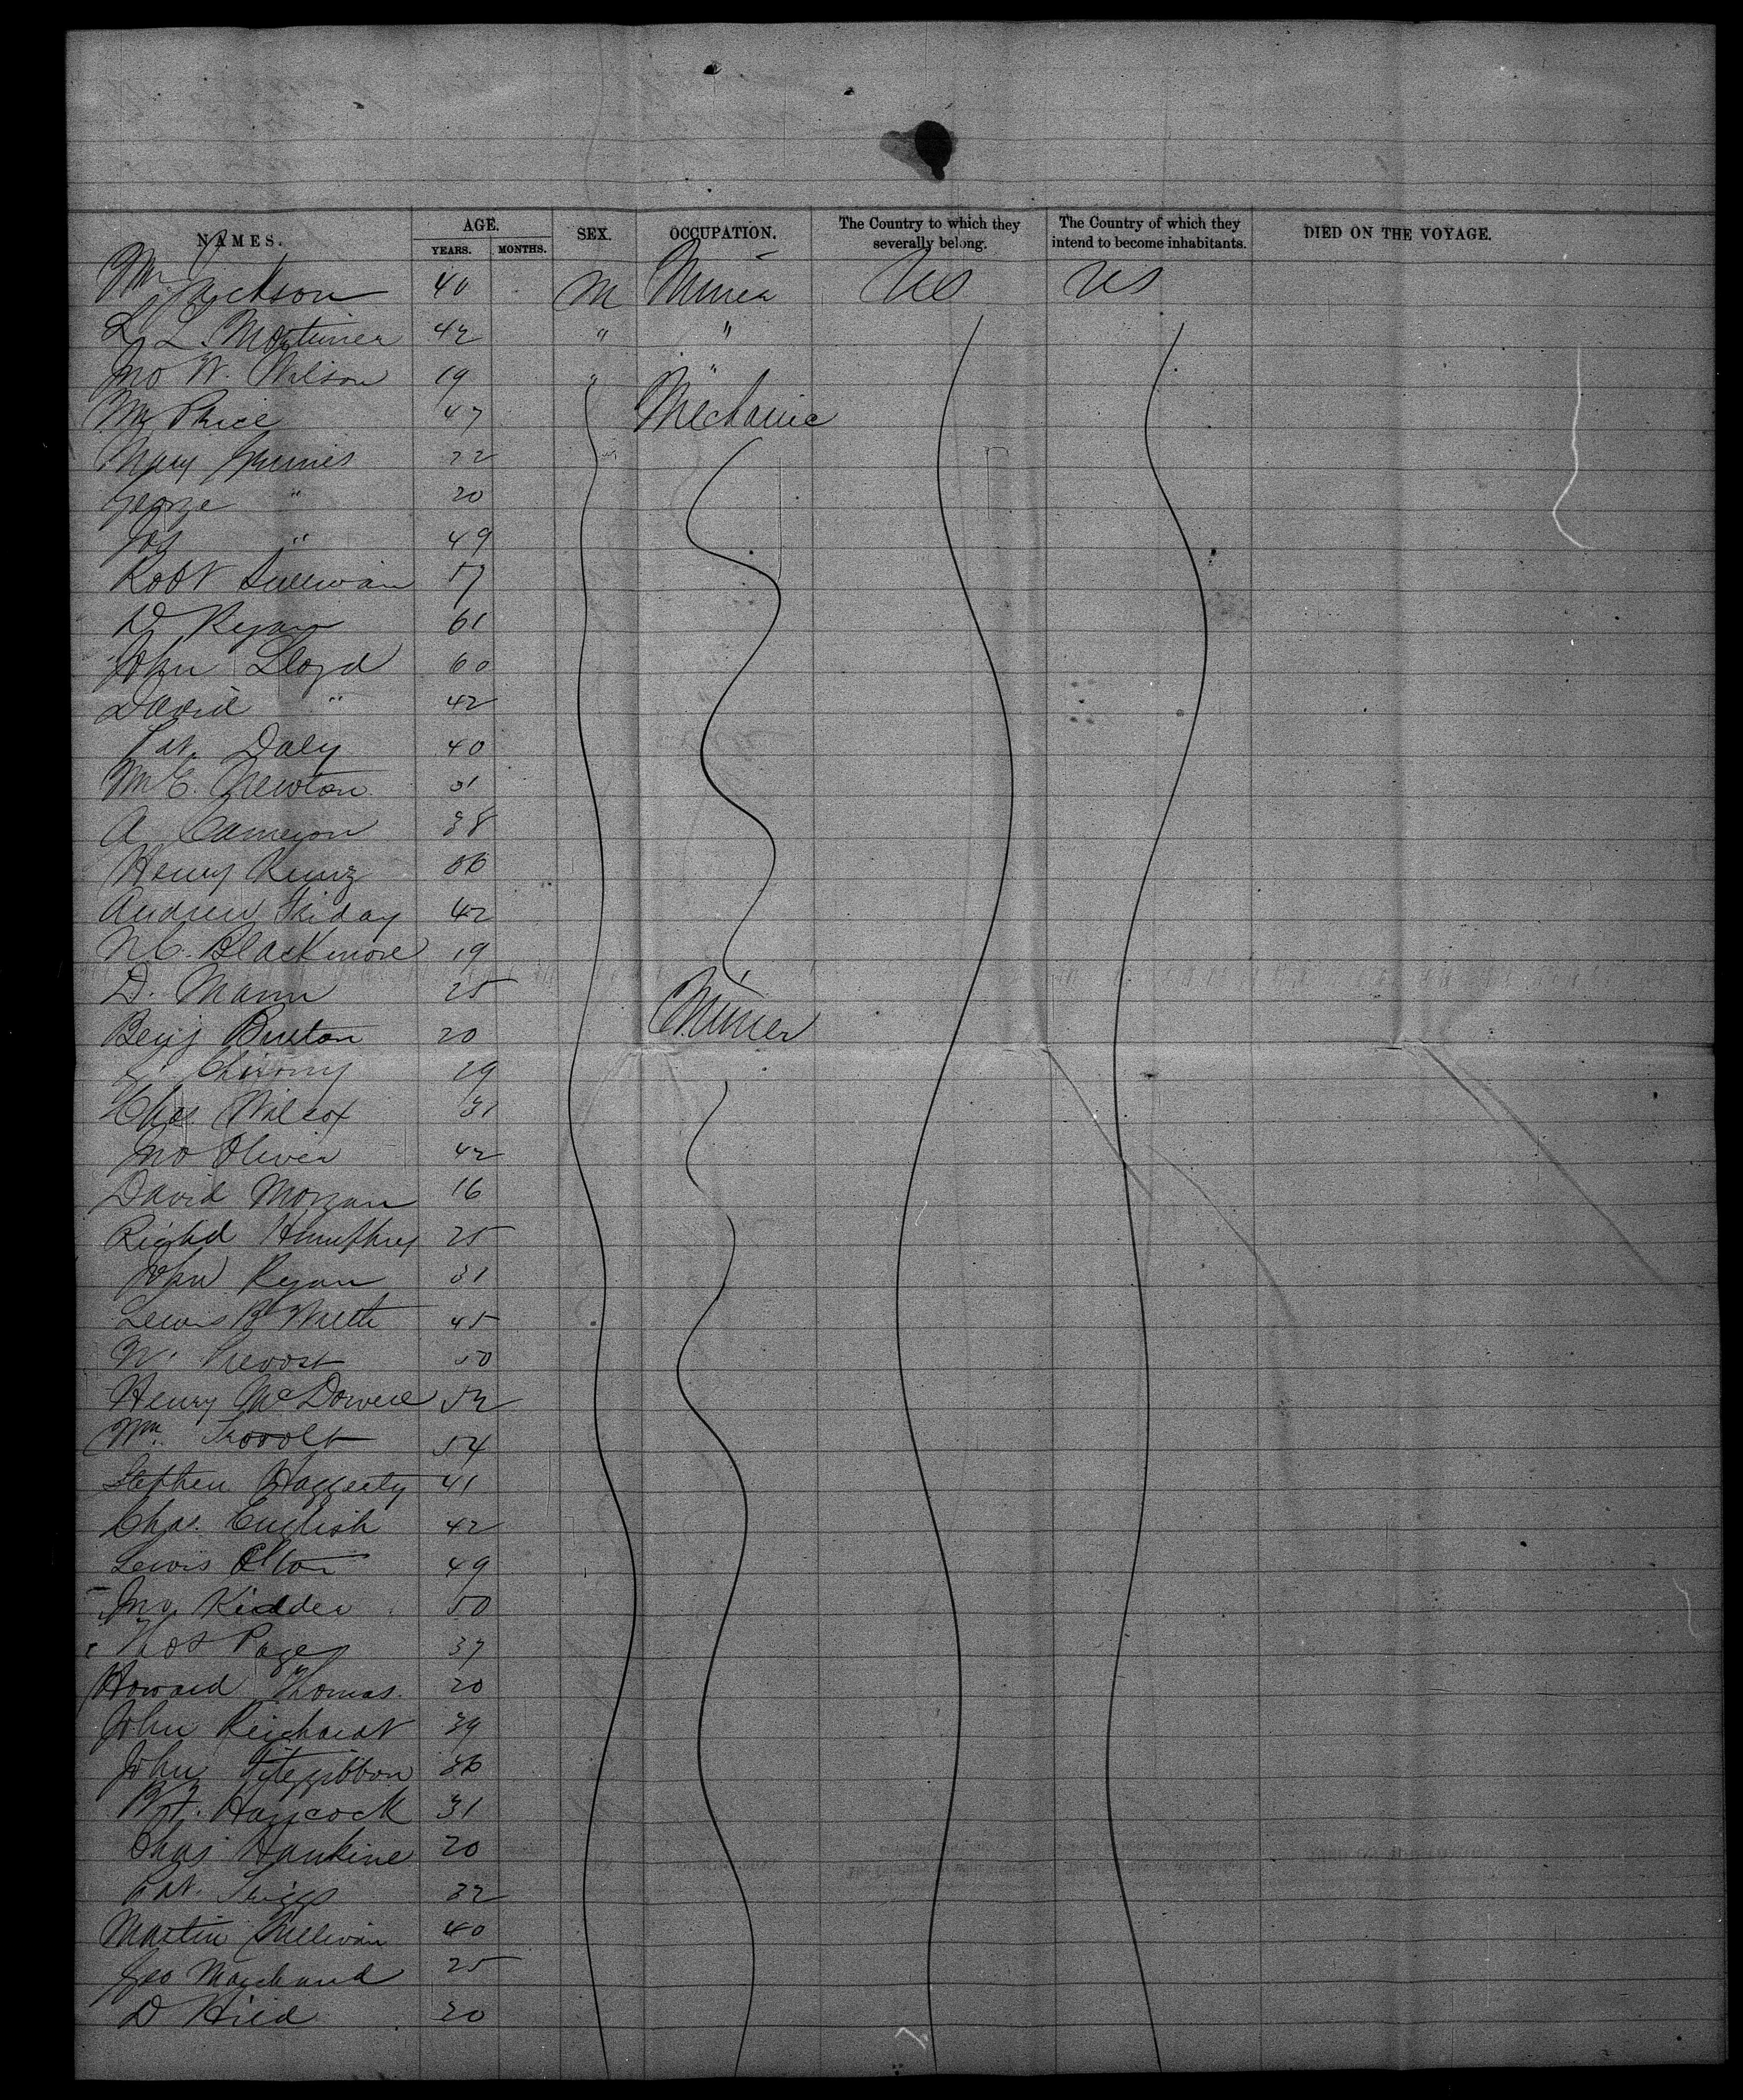 NAMES. AGE. YEARS. MONTHS. SEX. OCCUPATION. The Country to which they severally belong. The Country of which they intend to become inhabitants. DIED ON THE VOYAGE.
Jackson 40 M Miner US US
L. L. Mortimer 42 " "
Jno W. Wilson 19 " "
Price 47 Mechanic
Mary Grimes 22
George " 20
Jos " 49
Robt Sullivan 57
D Ryan 61
John Lloyd 60
David " 42
Pat. Daly 40
Newton 31
A Cameron 38
Henry 36
Andrew Friday 42
Blackmore 19
D. Mann 25
Benj Burton 20 Miner
29
Chas Wilcox 31
Jno Oliver 42
David Morgan 16
Richd Humphrey 25
John Ryan 31
Lewis B 45
W. Prevost 50
Henry McDowell 52
Wm. 54
Stephen Haggerty 41
Chas. English 42
Lewis Olton 49
Jno. Kidder 50
Thos Page 37
Howard Thomas. 20
John Reichardt 39
John Fitzgibbon 36
Haycock 31
Chas Hankine 20
Pat. 32
Martin Sullivan 40
Geo Marchand 25
D Hild 20